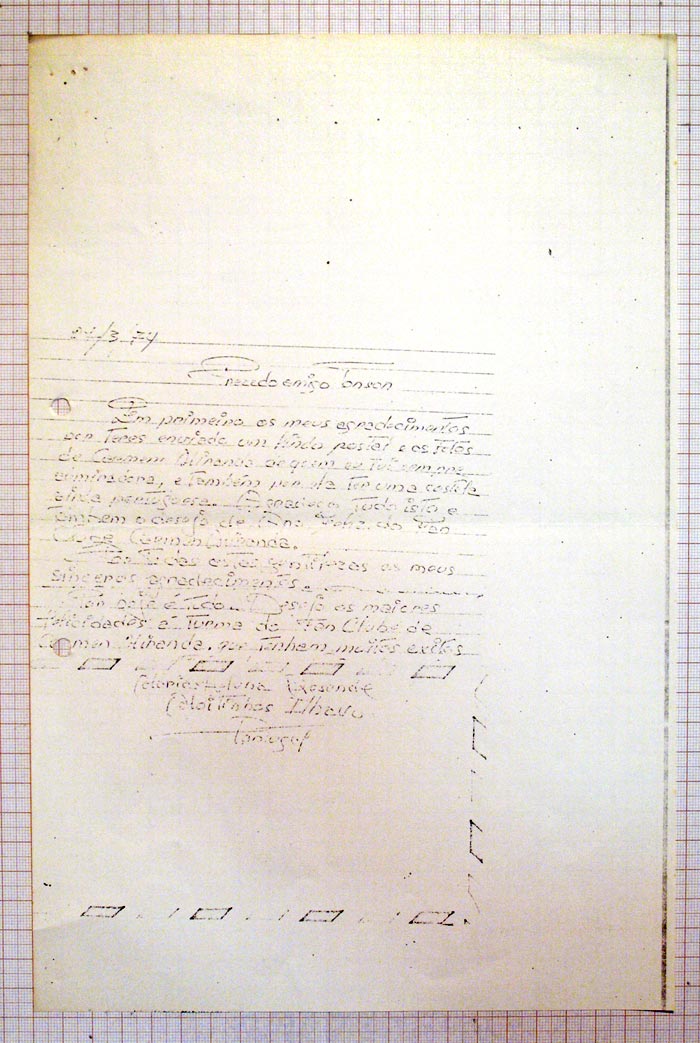 /3/74
Prezado amigo Tonson
Em primeiro os meus agradecimentos
por teres enviado um lindo postal e as fotos
de Carmem Miranda de quem eu fui sempre
e também por ela ter uma costela
ainda portuguesa. Agradeço tudo isto e
também o desejo de do Fan
Clube Carmen Miranda.
Por todas estas gentilezas os meus
sinceros agradecimentos.
Por aqui é tudo. Desejo as maiores
felicidades á turma do Fan Clube de
Carmen Miranda. que tenham muitos exitos
Resende
Ilhavo
Portugal